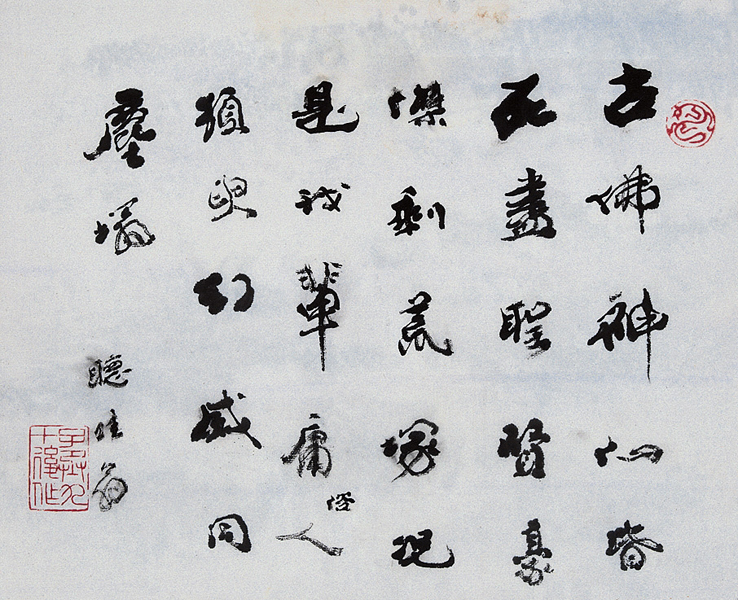 古佛神仙皆
死盡聖賢豪
傑剩荒塚況
是我輩庸俗人
須臾幻滅同
塵
聽翁